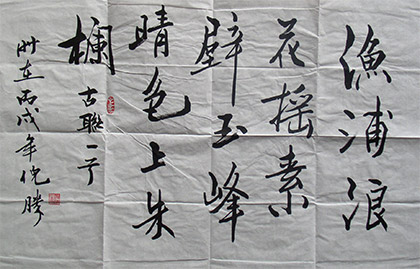 漁浦浪
花摇素
壁玉峰
晴色上朱
欄 古聯一
时在丙戌年倪勝